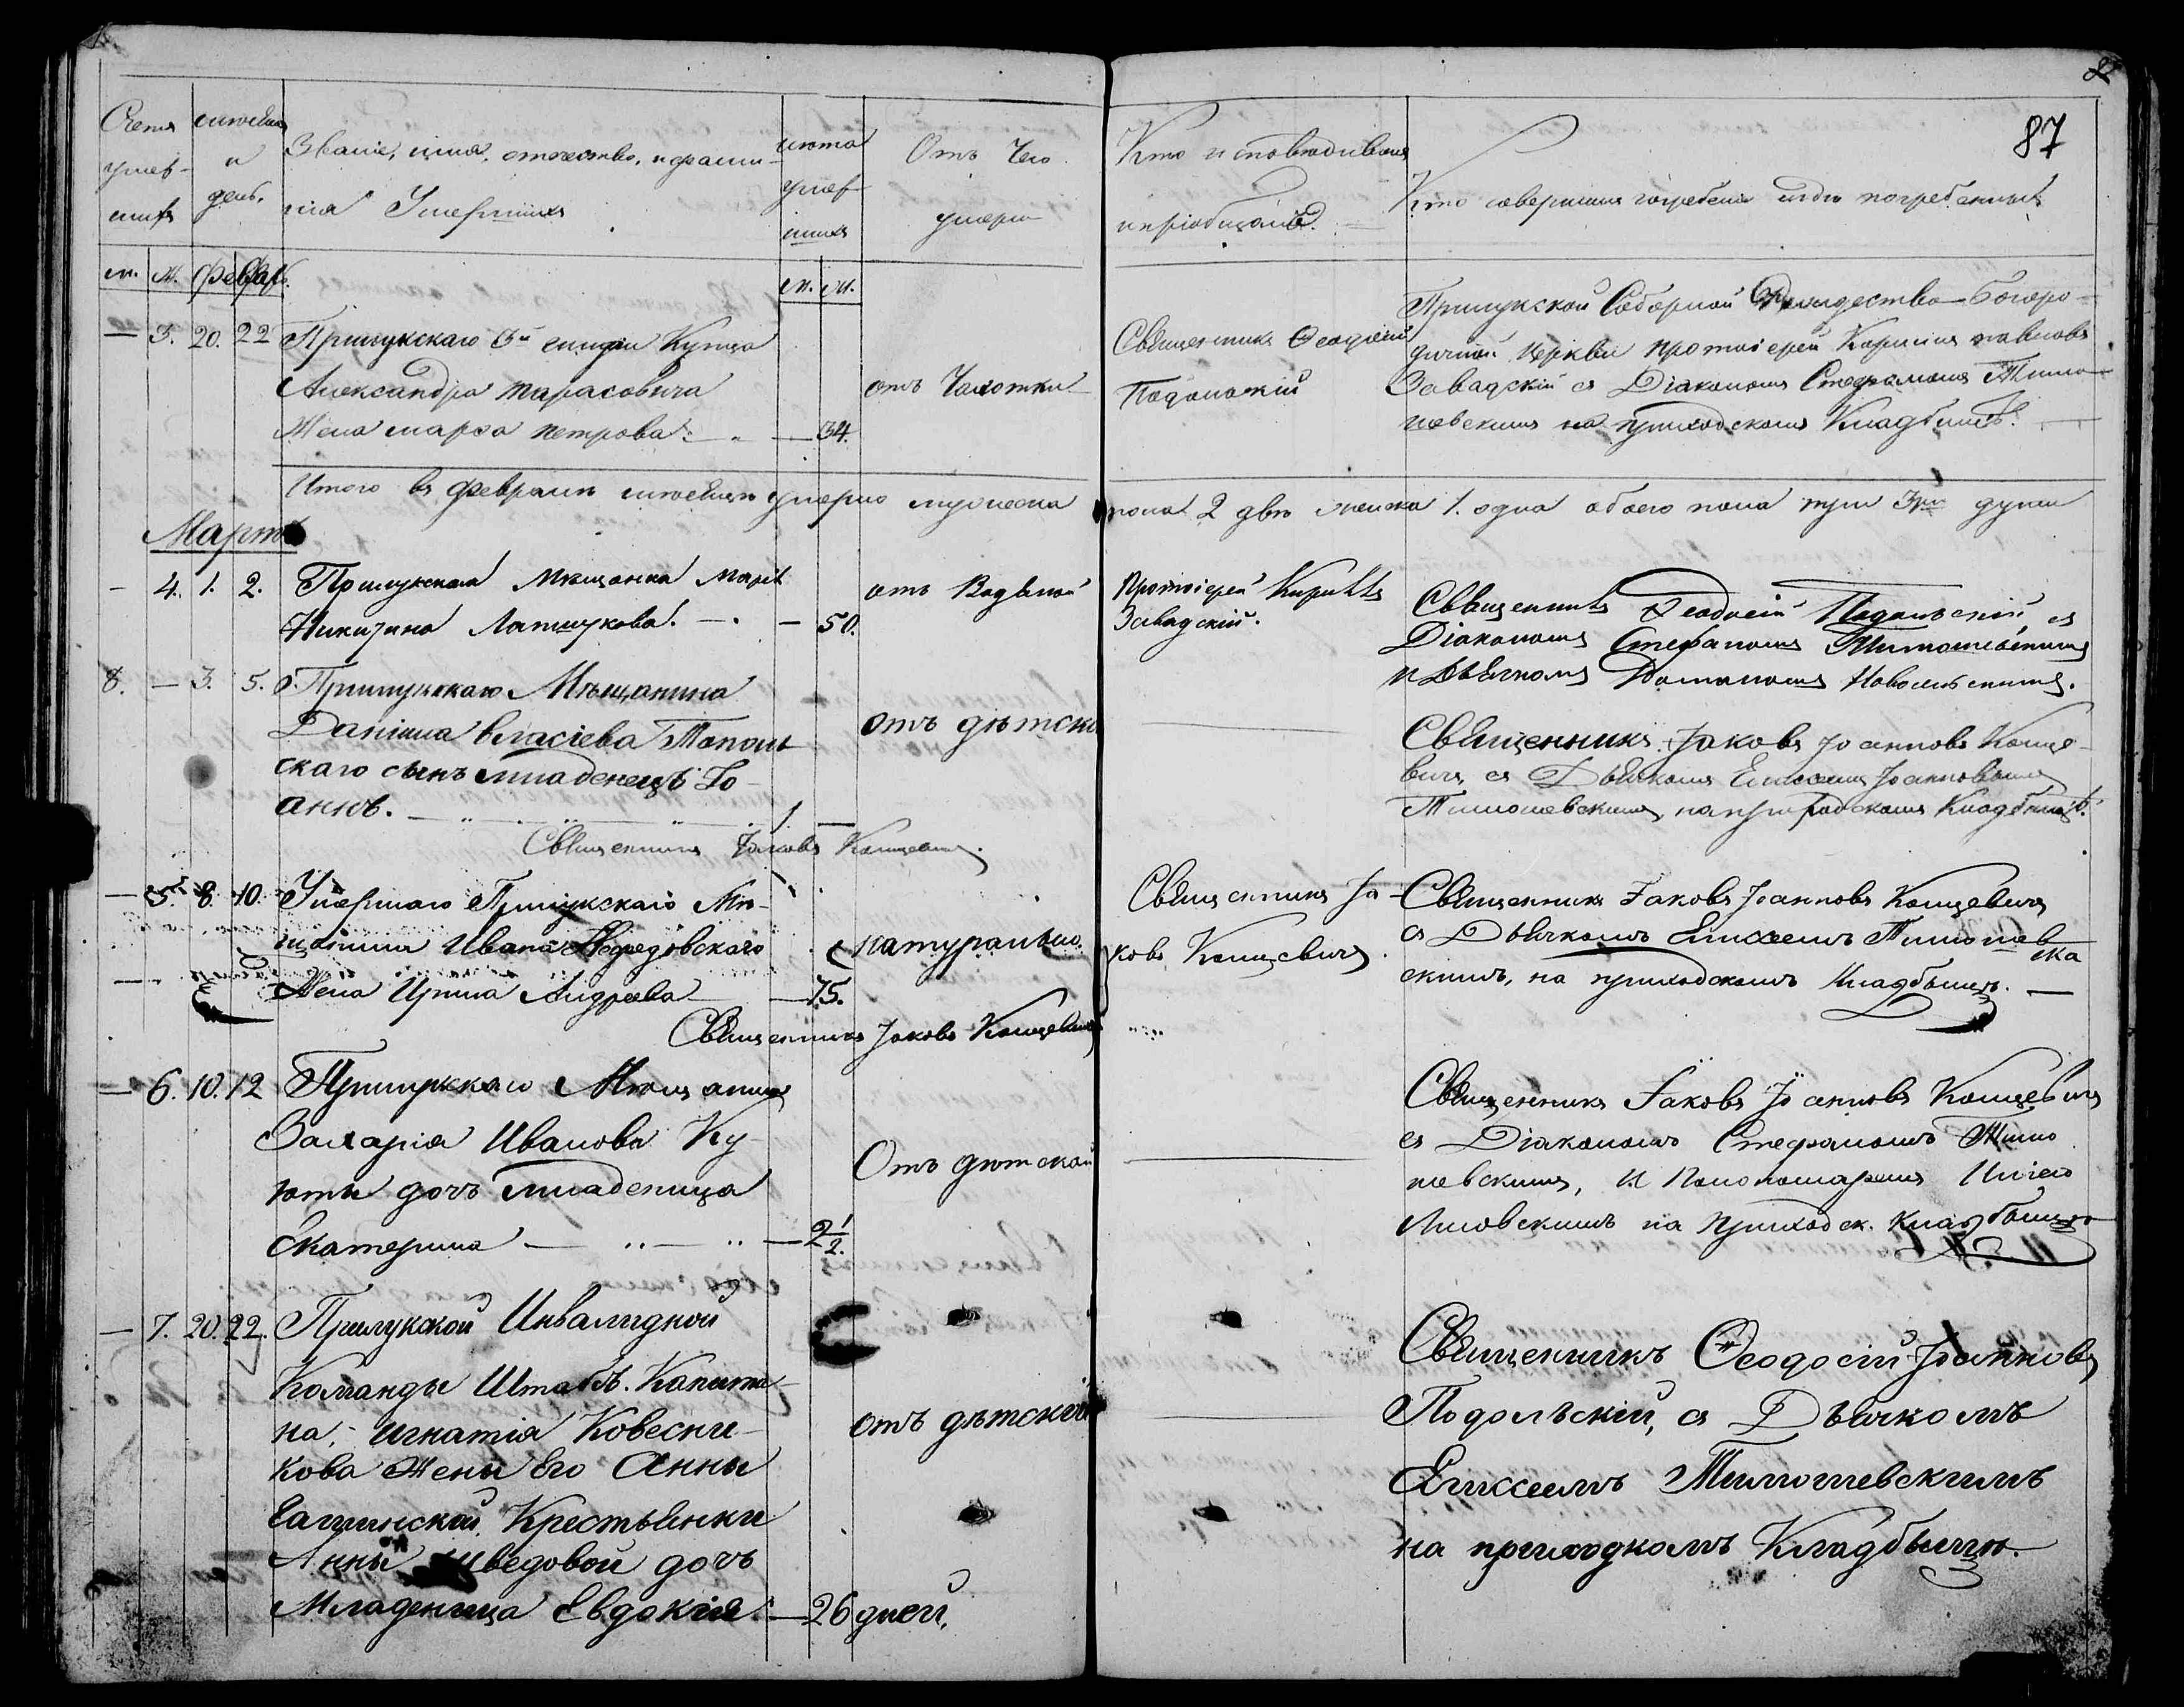 87
Счетъ умер-шихъ
мѣсяцъ и день.
Званіе, имя, отечество, и фамилія Умершихъ
лѣта умер-шихъ
Отъ Чего умеръ
Кто исповѣдивалъ и пріобщалъ.
Кто совершилъ погребеніе и гдѣ погребенны
м. ж. Февраль.
м. ж.
— 3. 20. 22 Прилукскаго 3й гилдіи Купца
Александра Тарасовича
Жена марѳа петрова — 34.
отъ Чахотки
Священникъ Ѳеодосій
Подольскій
Прилукской Соборной Рождество-Богоро-
дичной церкви протоіерей Кириллъ павловъ
Завадскій съ Діакономъ Стефаномъ Тимо-
шевскимъ на приходскомъ Кладбищѣ.
Итого въ февралѣ мѣсяцѣ умерло мужеска пола 2 двѣ женска 1. одна обоего пола три 3ри души
Мартъ
— 4. 1. 2. Прилукская Мѣщанка Марія
Никитина Латшукова. — 50.
отъ Водяной
Протоіерей Кириллъ
Завадскій.
Священникъ Ѳеодосій Подольскій съ
Діакономъ Стефаномъ Тимошевскимъ
и Дьячкомъ Новольскимъ.
8. — 3. 5. Прилукскаго Мѣщанина
Даніила Власіева Тополь-
скаго сынъ младенецъ Іо-
аннъ. — 1 —
отъ дѣтско
Священникъ Іаковъ Іоанновъ Кощевичъ съ Дьячкомъ Елисеемъ Іоанновымъ
Тимошевскимъ, на приходскомъ Кладбищѣ.
Священникъ Іаковъ Кощевичъ.
— 5. 8. 10. Умершаго Прилукскаго Мѣ-
щанина Ивана Ѳедоровскаго
Жена Ирина Андреева — 75.
натурально.
Священникъ Іа-
ковъ Кощевичъ.
Священникъ Іаковъ Іоанновъ Кощевичъ
съ Дьячкомъ Елисеемъ Тимошев
скимъ, на приходскомъ Кладбищѣ. —
Священникъ Іаковъ Кощевичъ
— 6. 10. 12 Прилукскаго Мѣщанина
Захарія Иванова Ку
юты дочь младеница
Екатерина — 2 1/2.
Отъ дѣтской
Священникъ Іаковъ Іоанновъ Кощевичъ
съ Діакономъ Стефаномъ Тимо
шевскимъ, и Пономаремъ
на приходск. кладбищѣ
— 7. 20. 22. Прилукской Инвалидной
Команды Штабсъ. Капита-
на, игнатія Ковесни-
кова Жены Его Анны
Крестьянки
Анны Шведовой дочь
Младеница Евдокія — 26 дней.
отъ дѣтской
Священникъ Ѳеодосій Іоанновъ
Подольскій, съ Дьячкомъ
Елисеемъ Тимошевскимъ
на приходкомъ Кладбыщѣ.